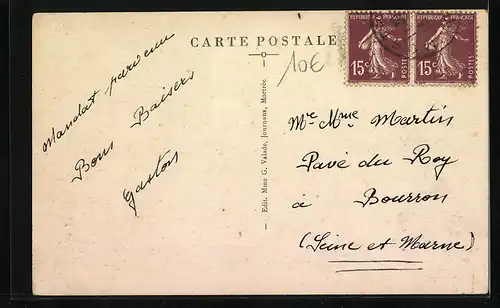 CARTE POSTALE
10€
REPUBLIQUE FRANÇAISE
15c
POSTES
REPUBLIQUE FRANÇAISE
15c
POSTES
Mandat parvenu
Bons Baisers
Gaston
Edit. Mme G. Valade, Journaux, Mortrée.
Mr Mme Martin
Pavé du Roy
à Bourron
(Seine et Marne)